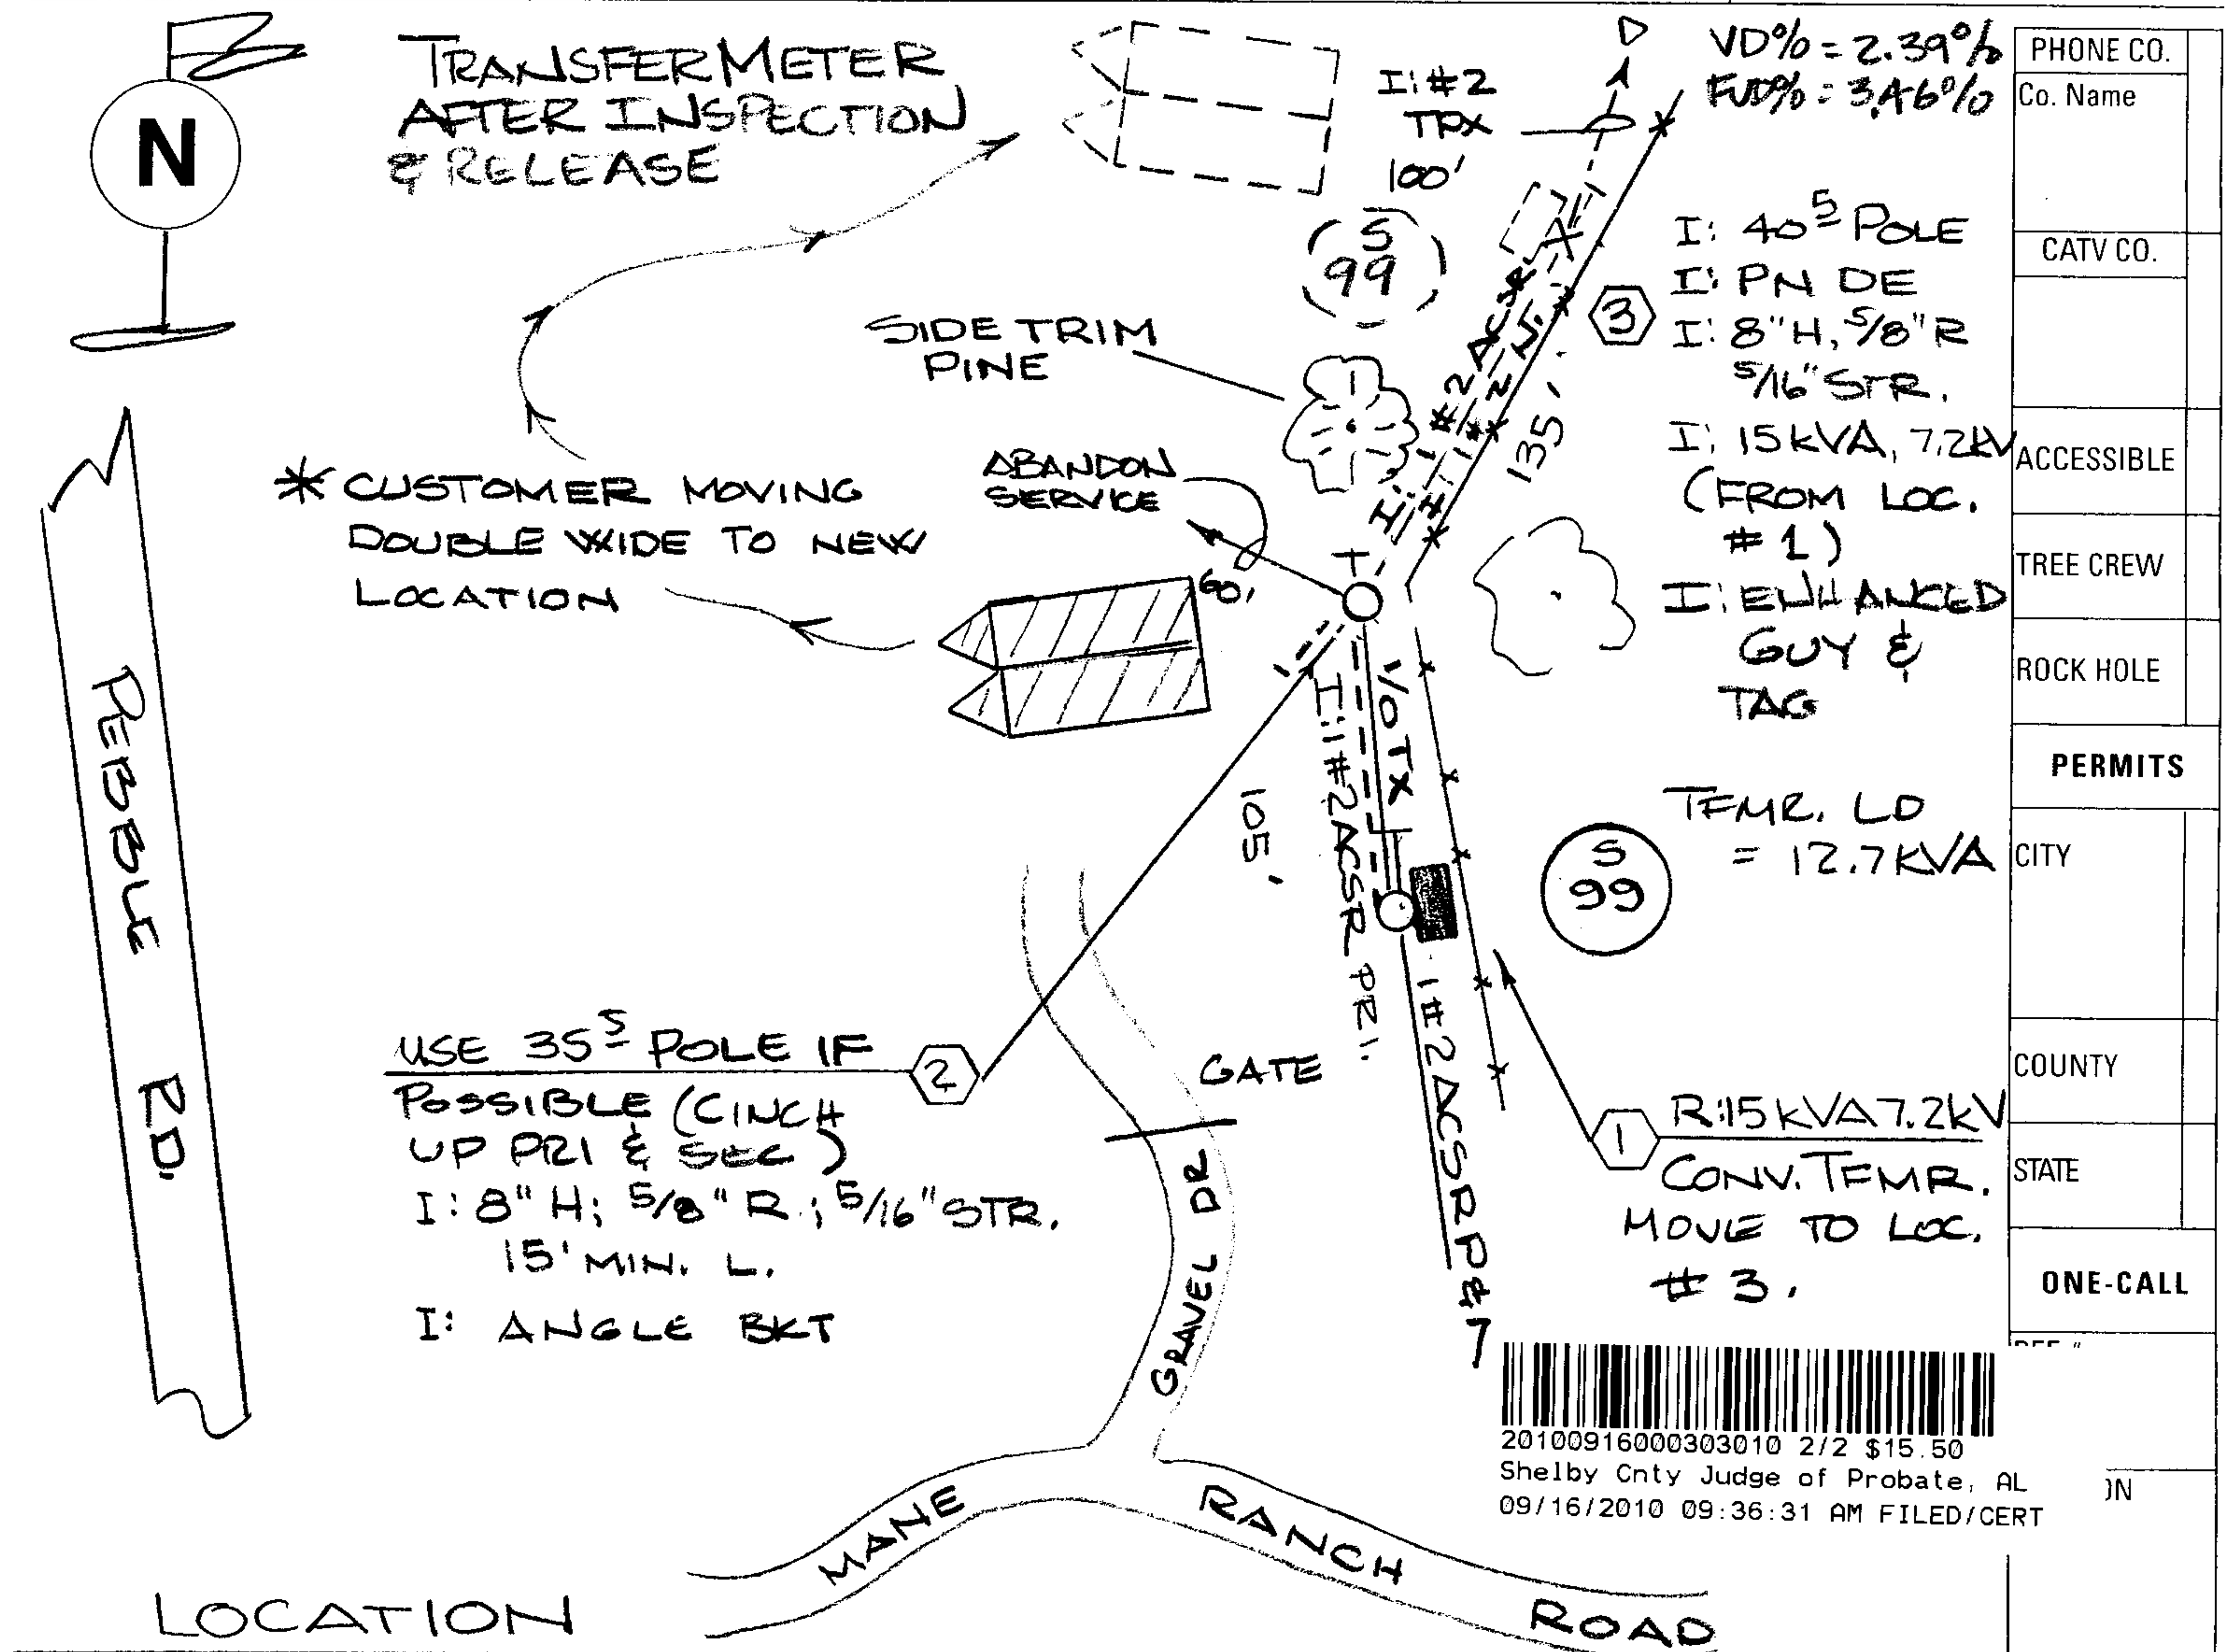 N
TRANSFER METER
AFTER INSPECTION
& RELEASE
I: #2
TPX
100'
VD% = 2.39%
FVD% = 3.46%
S
99
SIDE TRIM
PINE
3
I: 40 5 POLE
I: PN DE
I: 8" H, 5/8" R
5/16" STR.
I: 15 kVA, 7.2kV
(FROM LOC.
# 1)
I: ENHANCED
GUY &
TAG
135'
* CUSTOMER MOVING
DOUBLE WIDE TO NEW
LOCATION
ABANDON
SERVICE
60'
PEBBLE RD.
1/0 TX
I: 1#2ACSR PRI.
105'
TFMR. LD
= 12.7 KVA
S
99
USE 35 5 POLE IF
POSSIBLE (CINCH
UP PRI & SEC)
I: 8" H; 5/8" R; 5/16" STR.
15' MIN. L.
I: ANGLE BKT
2
GATE
GRAVEL DR
1#2ACSR
1
R:15 kVA 7.2kV
CONV. TFMR.
MOVE TO LOC.
# 3.
MANE RANCH ROAD
LOCATION
PHONE CO.
Co. Name
CATV CO.
ACCESSIBLE
TREE CREW
ROCK HOLE
PERMITS
CITY
COUNTY
STATE
ONE-CALL
20100916000303010 2/2 $15.50
Shelby Cnty Judge of Probate, AL
09/16/2010 09:36:31 AM FILED/CERT